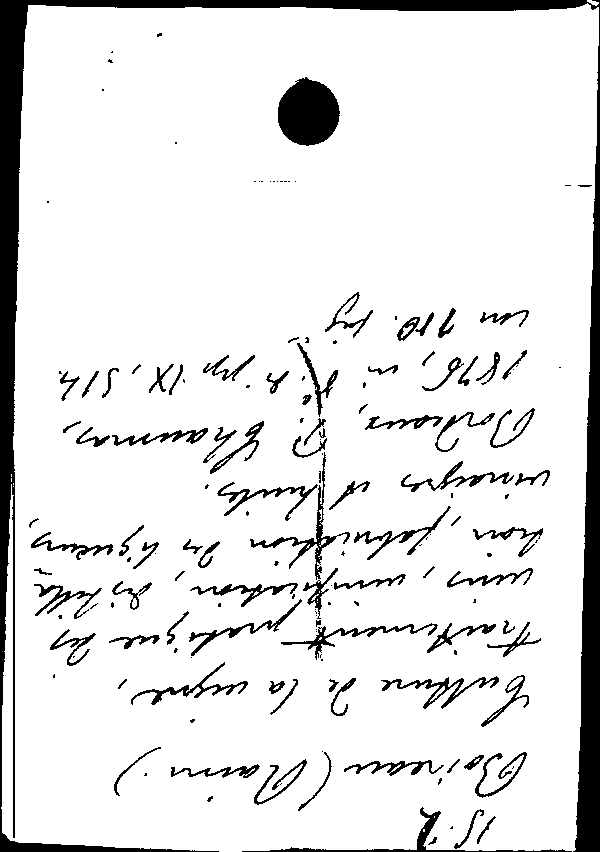 15.2
Boireau (Raim.)
Culture de la vigne,
traitement pratique des
vins, vinification, distilla
tion, fabrication des liqueurs,
vinaigres et huiles.
Bordeaux, P. Chaumas,
1876, in 8°. de pp. IX, 514.
con 110. fig